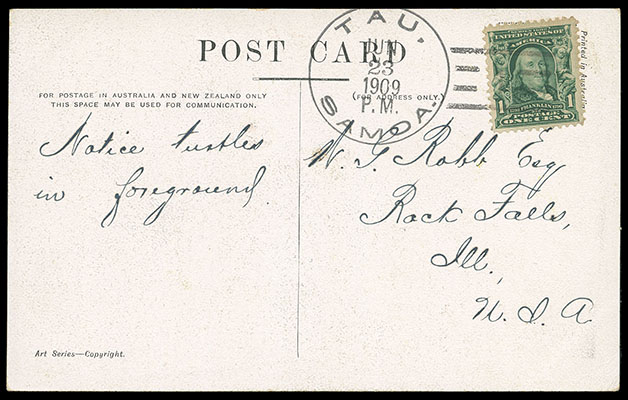 POST CARD
TAU.
JUN
23
1909
P.M.
SAMOA.
UNITED STATES OF
AMERICA
1 FRANKLIN 1
POSTAGE
ONE CENT
Printed in Australia
FOR POSTAGE IN AUSTRALIA AND NEW ZEALAND ONLY
THIS SPACE MAY BE USED FOR COMMUNICATION.
(FOR ADDRESS ONLY.)
Notice turtles
in foreground.
W. G. Robb Esq
Rock Falls,
Ill.,
U. S. A
Art Series—Copyright.